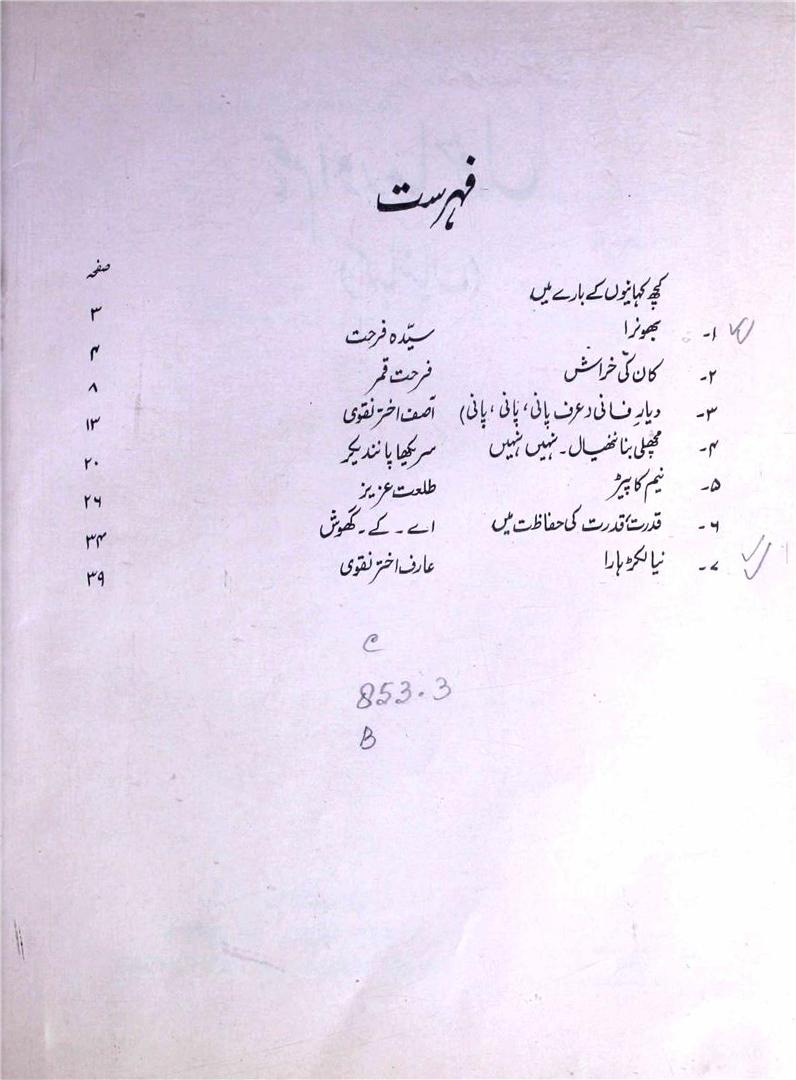 فہرست
صفحہ
کچھ کہانیوں کے بارے میں ۳
۱۔ بھونرا سیّدہ فرحت ۴
۲۔ کان کی خراش فرحت قمر ۸
۳۔ دیارِ فانی (عرف پانی، پانی، پانی) آصف اختر نقوی ۱۳
۴۔ مچھلی بنا ننھیال۔ نہیں نہیں سریکھا پانندیکر ۲۰
۵۔ نیم کا پیڑ طلعت عزیز ۲۶
۶۔ قدرت، قدرت کی حفاظت میں اے۔ کے۔ گھوش ۳۴
۷۔ نیا لکڑہارا عارف اختر نقوی ۳۹
C
853.3
B